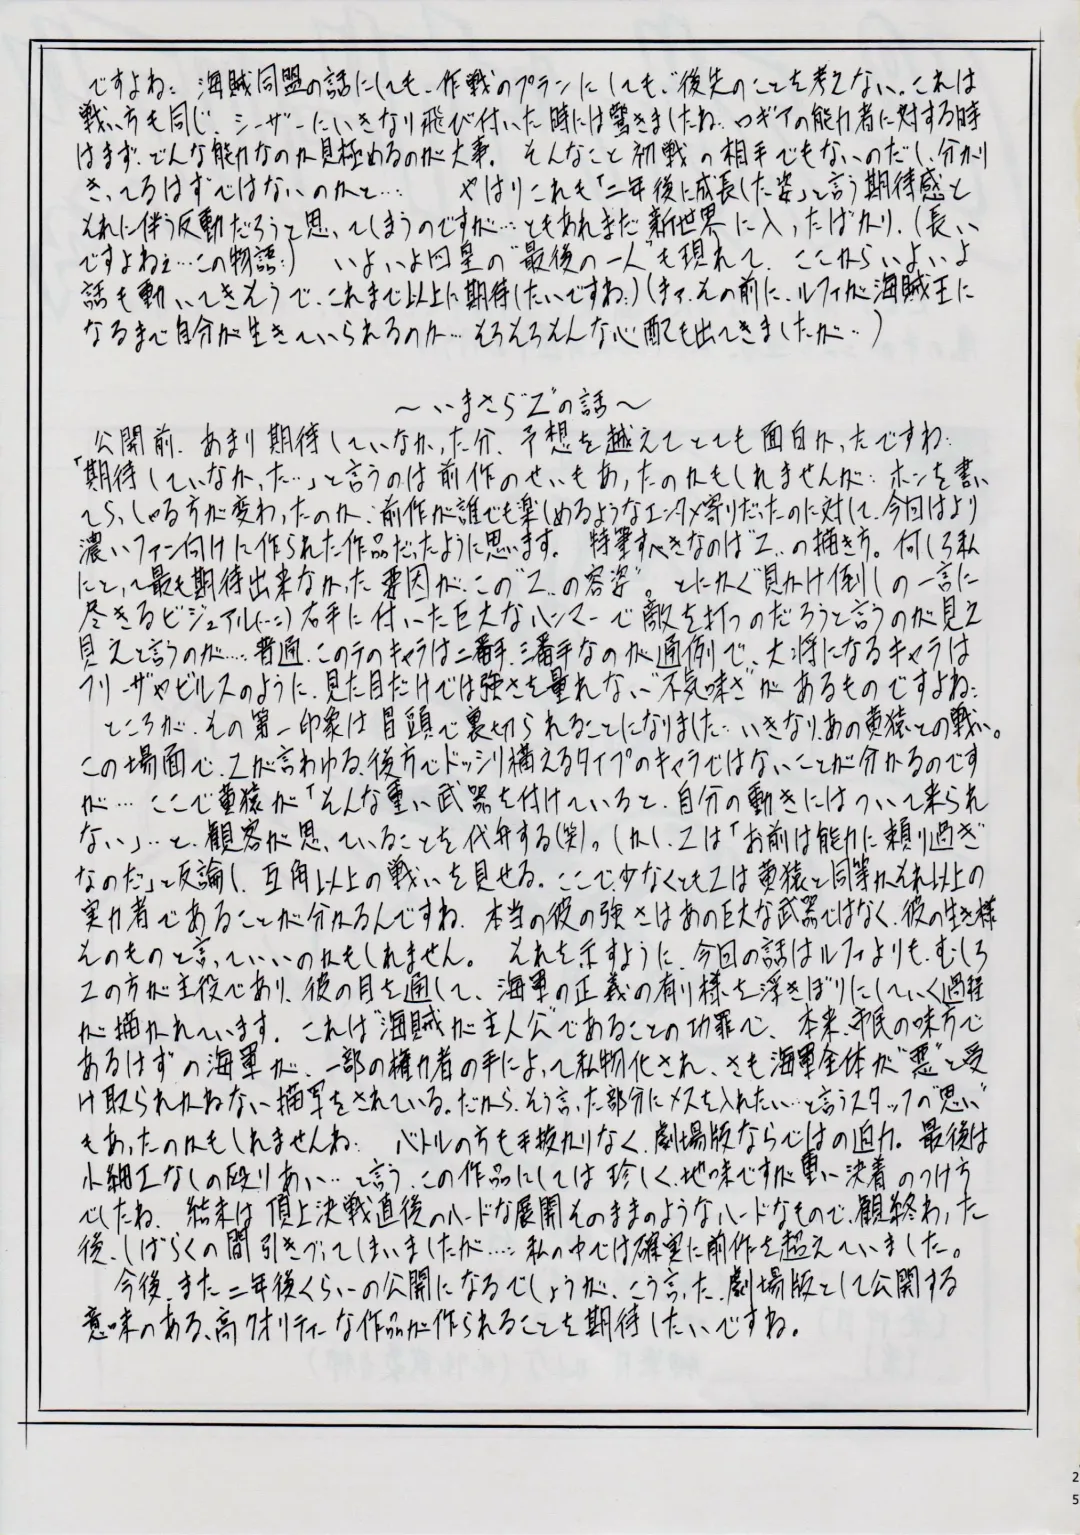 ですよね: 海賊同盟の話にしても、作戦のプランにしても“後先のことを考えない。これは
戦い方も同じ、シーザーにいきなり飛び付いた時には驚きましたね: ロギアの能力者に対する時
はまず、どんな能力なのか見極めるのが大事。 そんなこと初戦の相手でもないのだし、分かり
きってるはずではないのかと… やはりこれも「二年後に成長した姿」と言う期待感と
それに伴う反動だろうと思ってしまうのですが… ともあれまだ新世界に入ったばかり、(長い
ですよねぇ…この物語:) いよいよ四皇の“最後の一人”も現れて、ここからいよいよ
話も動いてきそうで、これまで以上に期待したいですね:)(まァ、その前に、ルフィが海賊王に
なるまで自分が生きていられるのか… そろそろそんな心配も出てきましたが…)
～いまさら“Z”の話～
公開前、あまり期待していなかった分、予想を越えてとても面白かったですね:
「期待していなかった…」と言うのは前作のせいもあったのかもしれませんが: ホンを書い
てらっしゃる方が変わったのか、前作が誰でも楽しめるようなエンタメ寄りだったのに対して、今回はより
濃いファン向けに作られた作品だったように思います。 特筆すべきなのは“Z”の描き方。何しろ私
にとって最も期待出来なかった要因が、この“Z”の容姿”。とにかく“見かけ倒しの一言に
尽きるビジュアル(--;)右手に付いた巨大なハンマーで敵を打つのだろうと言うのが見え
見えと言うのが…… 普通、このテのキャラは二番手、三番手なのが通例で、大将になるキャラは
フリーザやビルスのように、見た目だけでは強さを量れない“不気味さ”があるものですよね:
ところが、その第一印象は冒頭で裏切られることになりました… いきなり、あの黄猿との戦い。
この場面で、Zが言わゆる、後方でドッシリ構えるタイプのキャラではないことが分かるのです
が… ここで黄猿が「そんな重い武器を付けていると、自分の動きにはついて来られ
ない」…と、観客が思っていることを代弁する(笑)。しかし、Zは「お前は能力に頼り過ぎ
なのだ」と反論し、互角以上の戦いを見せる。ここで、少なくともZは黄猿と同等か、それ以上の
実力者であることが分かるんですね、本当の彼の強さはあの巨大な武器ではなく、彼の生き様
そのものと言っていいのかもしれません。 それを示すように、今回の話はルフィよりも、むしろ
Zの方が主役であり、彼の目を通して、海軍の正義の有り様を浮きぼりにしていく過程
が描かれています。 これは“海賊が主人公”であることの功罪で、本来、市民の味方で
あるはずの海軍が、一部の権力者の手によって私物化され、さも海軍全体が“悪”と受
け取られかねない描写をされている。だから、そう言った部分にメスを入れたい…と言うスタッフの“思い”
もあったのかもしれませんね: バトルの方も手抜かりなく、劇場版ならではの迫力。最後は
小細工なしの殴りあい… と言う、この作品にしては珍しく、地味ですが重い決着のつけ方
でしたね、 結末は頂上決戦直後のハードな展開そのままのようなハードなもので、観終わった
後、しばらくの間引きずってしまいましたが…: 私の中では確実に前作を超えていました。
今後、また二年後くらいの公開になるでしょうが、こう言った、劇場版として公開する
意味のある、高クオリティーな作品が作られることを期待したいですね。
2
5